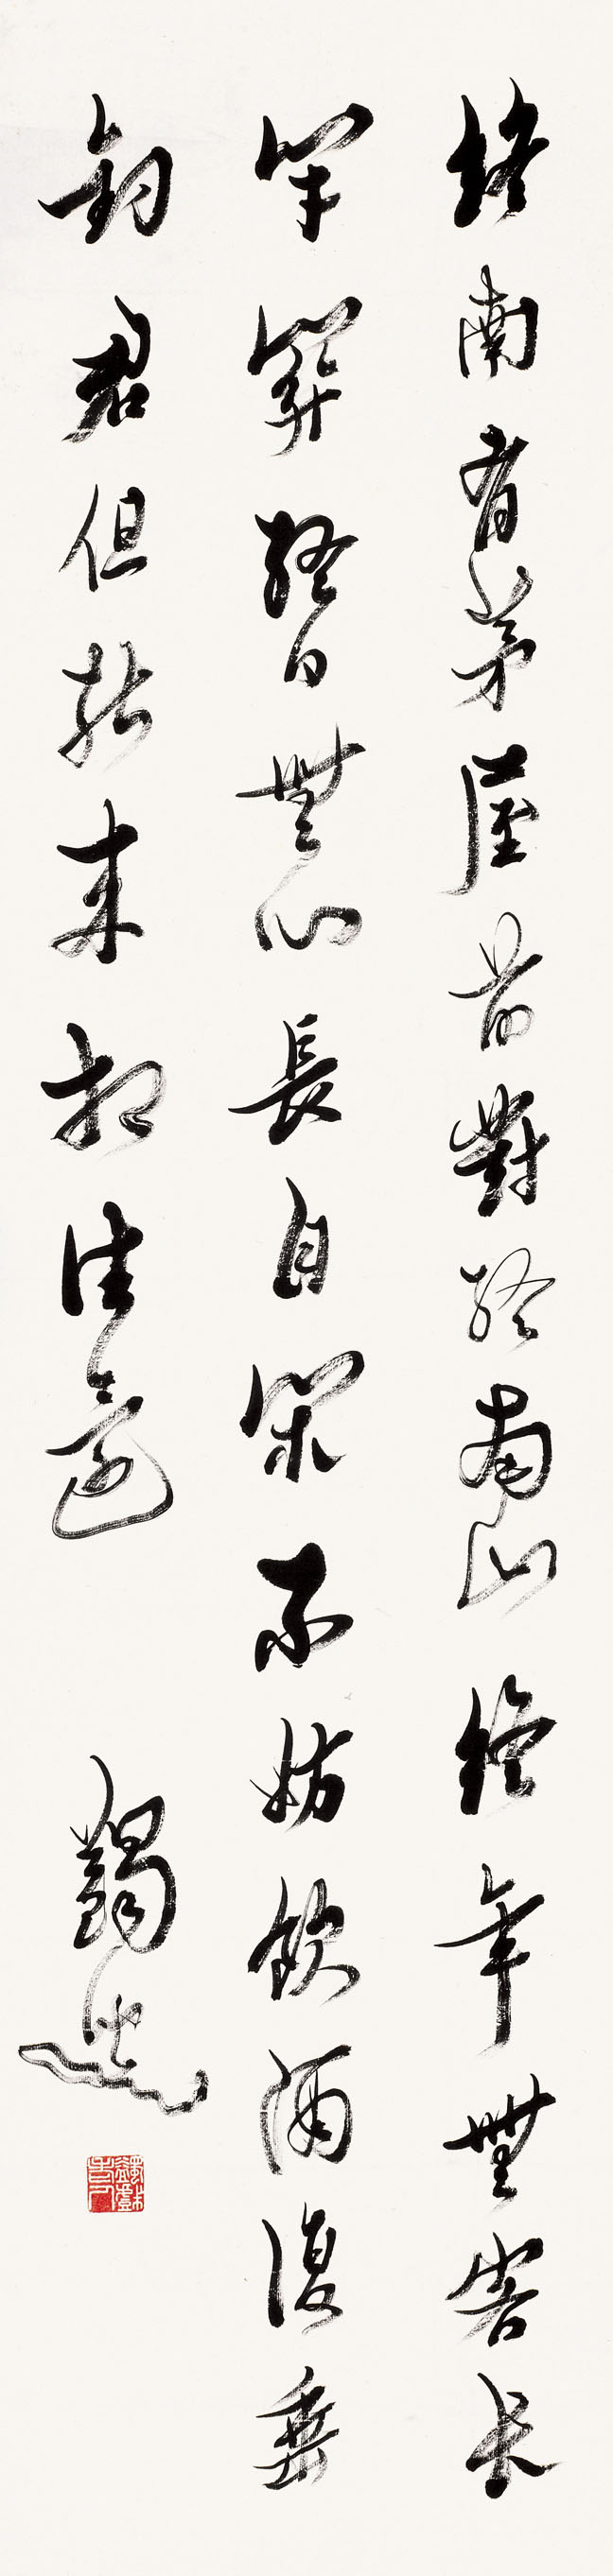 終南有茅屋前對終南山終年無客長
閉關終日無心長自閑不妨飲酒復垂
釣君但能來相往還
蠲叟